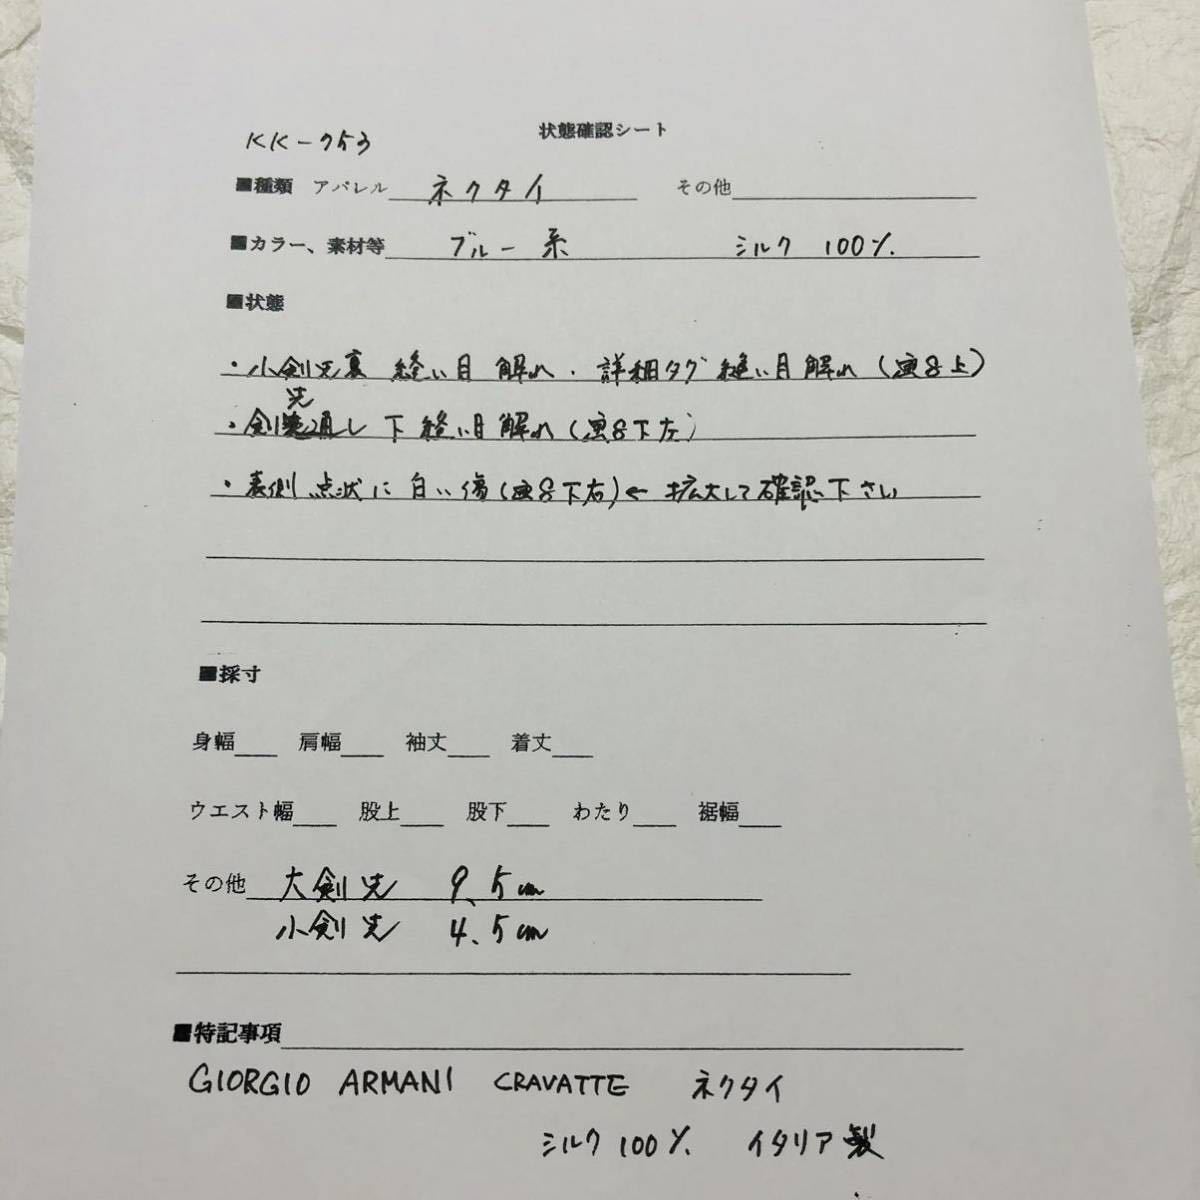 状態確認シート
KK-753
■種類 アパレル ネクタイ その他
■カラー、素材等 ブルー系 シルク 100%
■状態
・小剣先裏 縫い目解れ・詳細タグ縫い目解れ(画8上)
先
・剣通し下縫い目解れ(画8下左)
・裏側点状に白い傷(画8下右)←拡大して確認下さい
■採寸
身幅 肩幅 袖丈 着丈
ウエスト幅 股上 股下 わたり 裾幅
その他 大剣先 9.5cm
小剣先 4.5cm
■特記事項
GIORGIO ARMANI CRAVATTE ネクタイ
シルク100% イタリア製